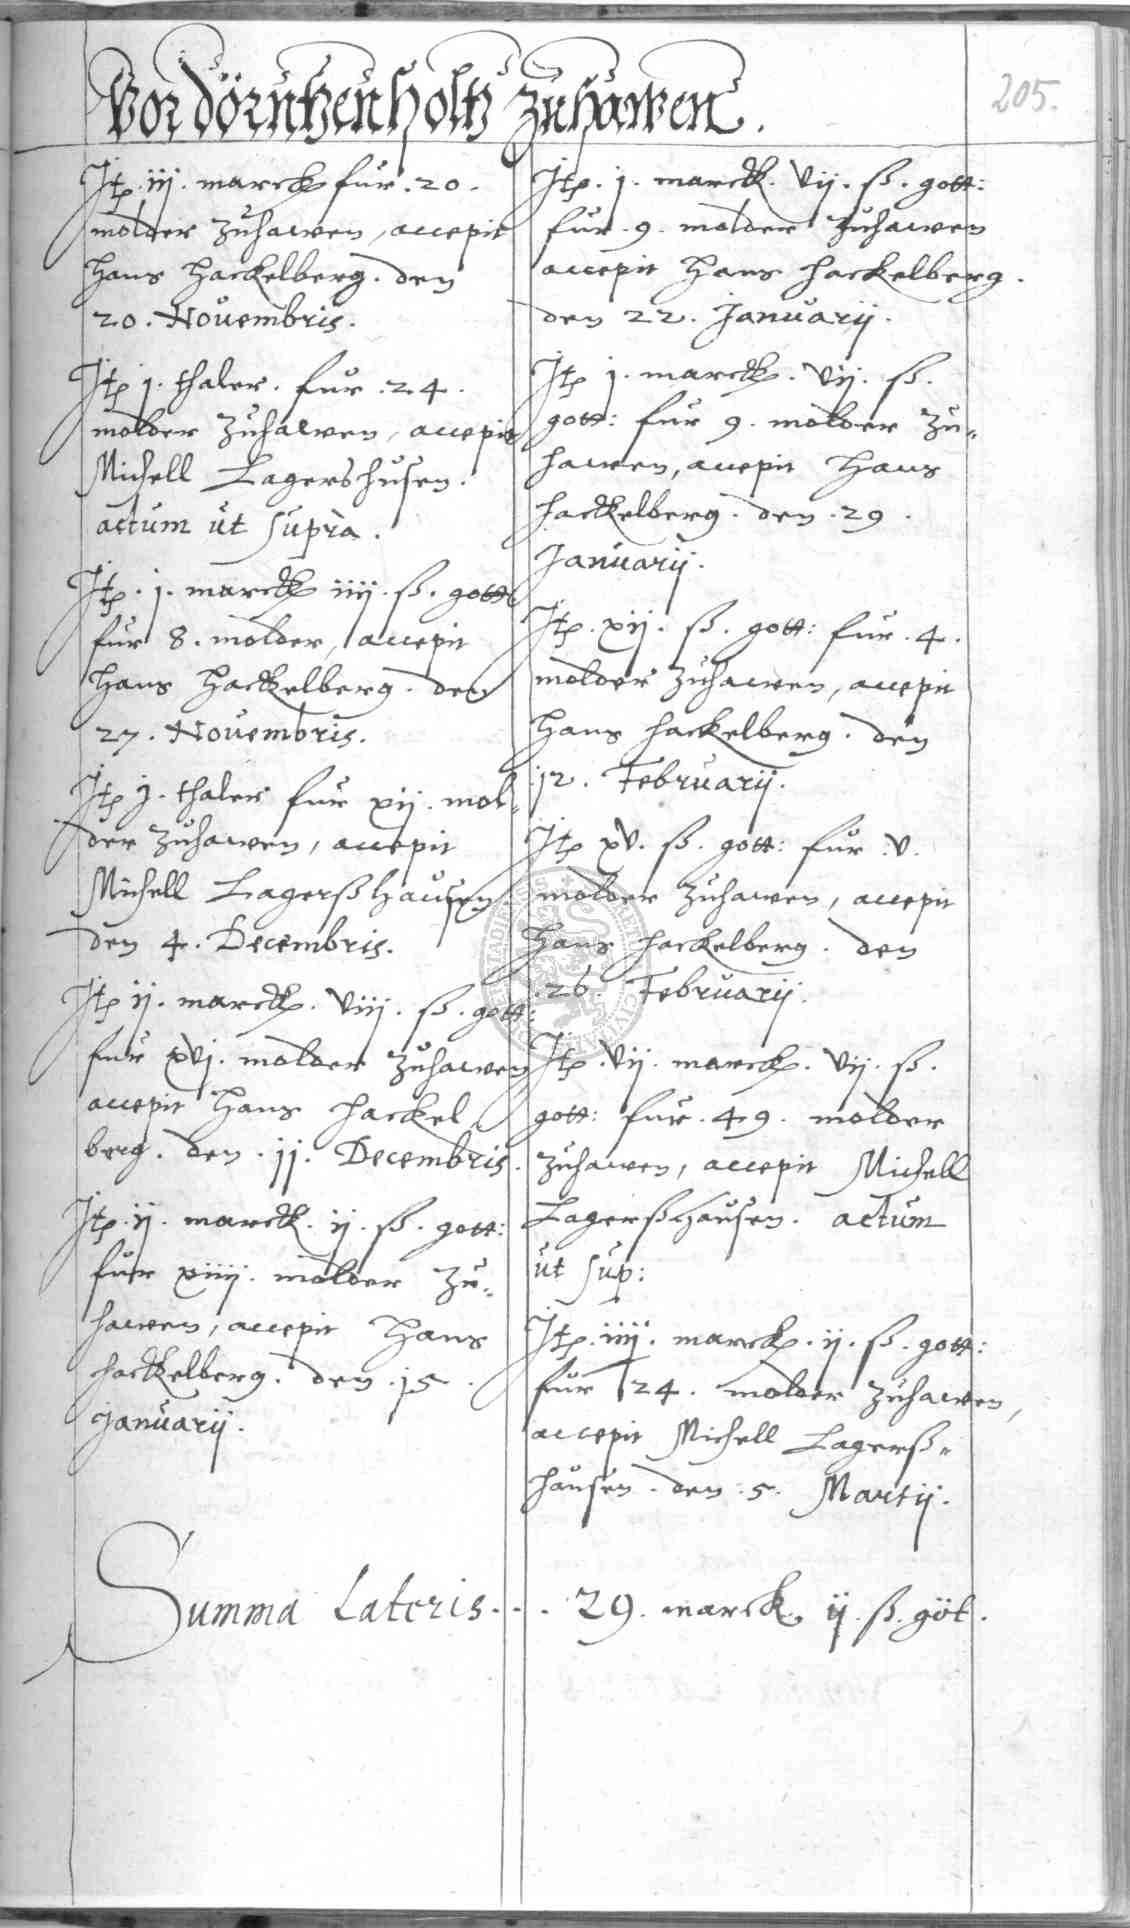 Vor dörntzen holtz zuhawen.
205.
Itp. iij. marck fur. 20.
molder zuhawen, accepit
Hans Hackelberg. den
20. Nouembris.
Itp j. thaler. fur. 24.
molder zuhawen, accepit
Michell Lagershusen.
actum ut supra.
Itp. j. marck iiij. ß. gott
fur 8. molder, accepit
Hans Hackelberg. den
27. Nouembris.
Itp j. thaler fur xij. mol„
der zuhawen, accepit
Michell Lagerßhausen.
den 4. Decembris.
Itp ij. marck. viij. ß. gott:
fur xvj. molder zuhawen
accepit Hans Hackel
berg. den. 11. Decembris.
Itp. ij. marck. ij. ß. gott:
fur xiiij. molder zu„
hawen, accepit Hans
Hackelberg. den. 15.
Januarij.
Itp. j. marck. vij. ß. gott:
fur. 9. molder zuhawen
accepit Hans Hackelberg.
den 22. Januarij.
Itp j. marck. vij. ß.
gott: fur 9. molder zu„
hawen, accepit Hans
Hackelberg. den. 29.
Januarij.
Itp. xij. ß. gott: fur. 4.
molder zuhawen, accepit
Hans Hackelberg. den
12. Februarij.
Itp xv. ß. gott: fur. v.
molder zuhawen, accepit
Hans Hackelberg. den
.26. Februarij.
Itp. vij. marck. vij. ß.
gott: fur. 49. molder
zuhawen, accepit Michell
Lagerßhausen. actum
ut sup:
Itp. iiij. marck. ij. ß. gott:
fur 24. molder zuhawen,
accepit Michell Lagerß„
hausen. den. 5. Martij.
Summa Lateris. . . 29. marck. ij. ß. göt.